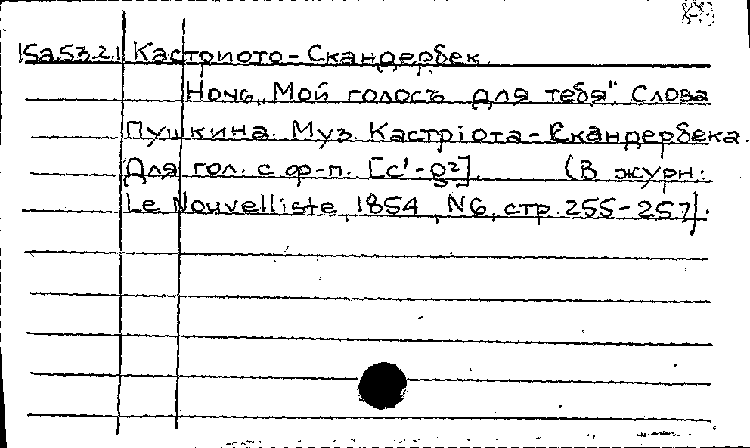 15а.53.2.1 Кастриото-Скандербек.
Ночь „Мой голосъ для тебя". Слова
Пушкина. Муз. Кастріота-Скандербека.
Для гол. с ф-п. [c'-g²]. (В журн.:
Le Nouvelliste, 1854, N6, стр. 255-257).